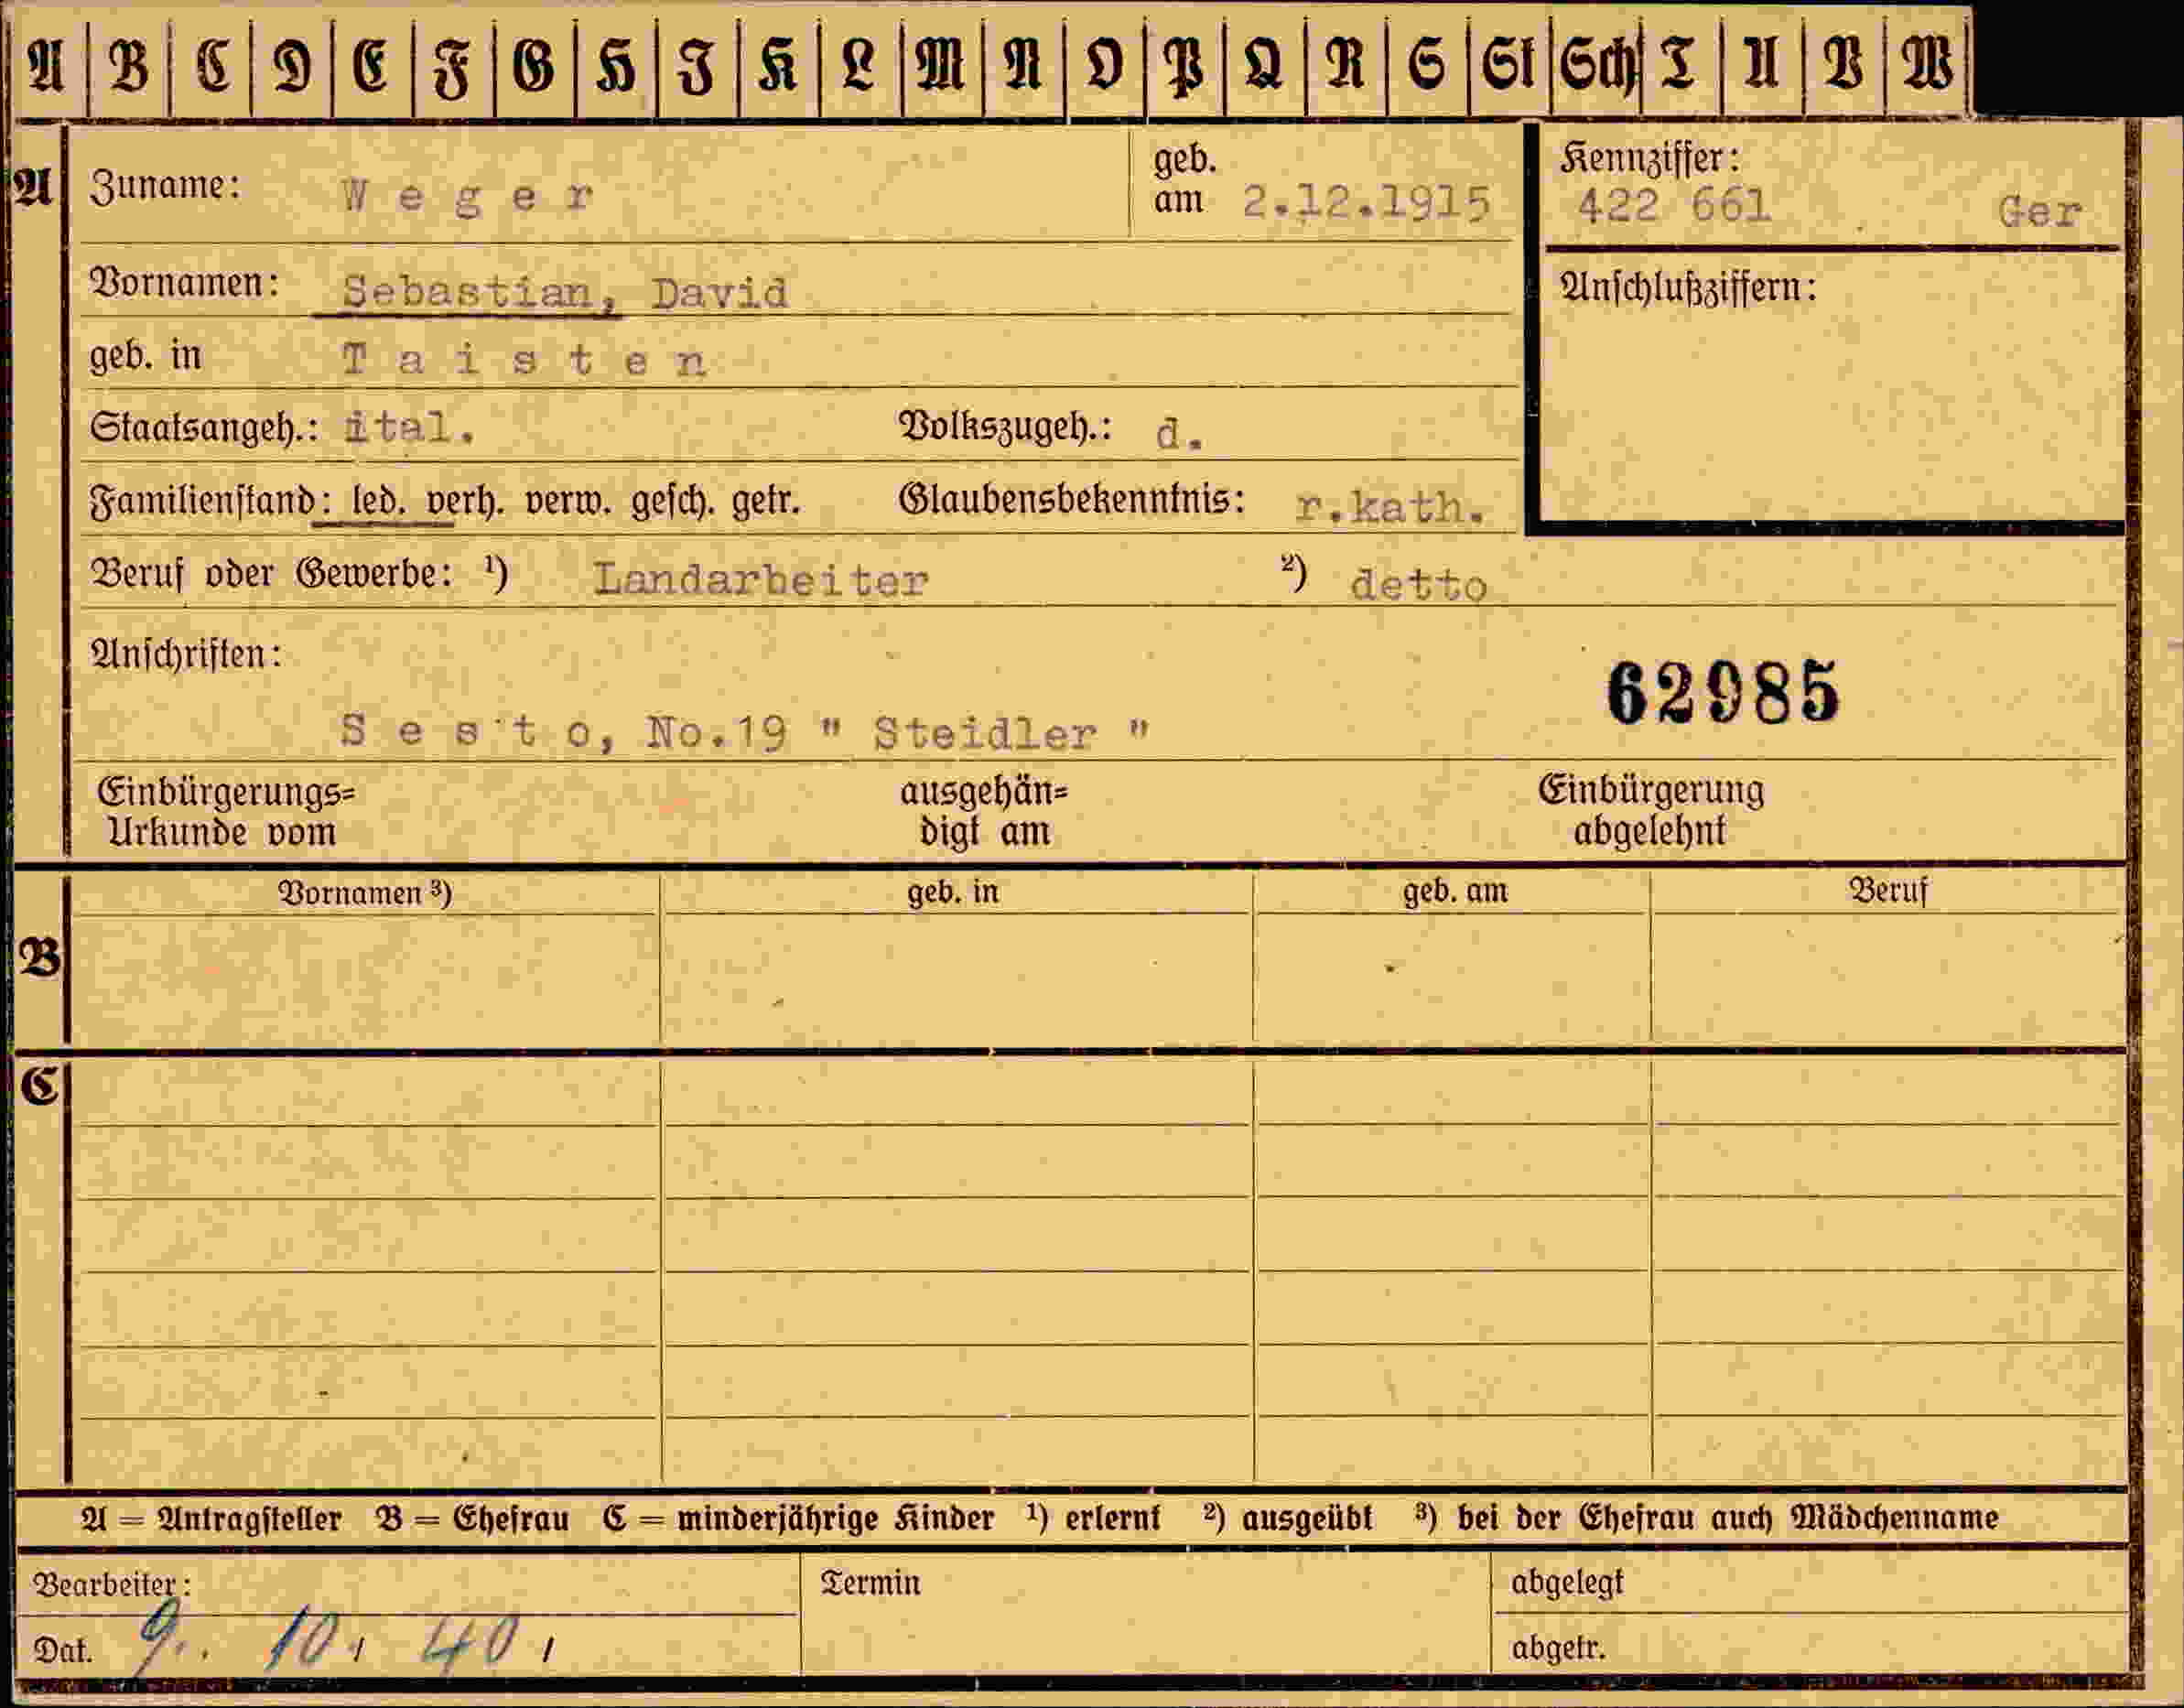 A B C D E F G H I K L M N O P Q R S St Sch T U V W
A
Zuname: Weger geb. am 2.12.1915
Kennziffer: 422 661 Ger
Vornamen: Sebastian, David
Anschlußziffern:
geb. in Taisten
Staatsangeh.: ital. Volkszugeh.: d.
Familienstand: led. verh. verw. gesch. getr. Glaubensbekenntnis: r.kath.
Beruf oder Gewerbe: ¹) Landarbeiter ²) detto
Anschriften:
62985
Sesto, No.19 " Steidler "
Einbürgerungs= Urkunde vom ausgehän= digt am Einbürgerung abgelehnt
B
Vornamen ³) geb. in geb. am Beruf
C
A = Antragsteller B = Ehefrau C = minderjährige Kinder ¹) erlernt ²) ausgeübt ³) bei der Ehefrau auch Mädchenname
Bearbeiter: Termin abgelegt
Dat. 9. 10. 40. abgetr.